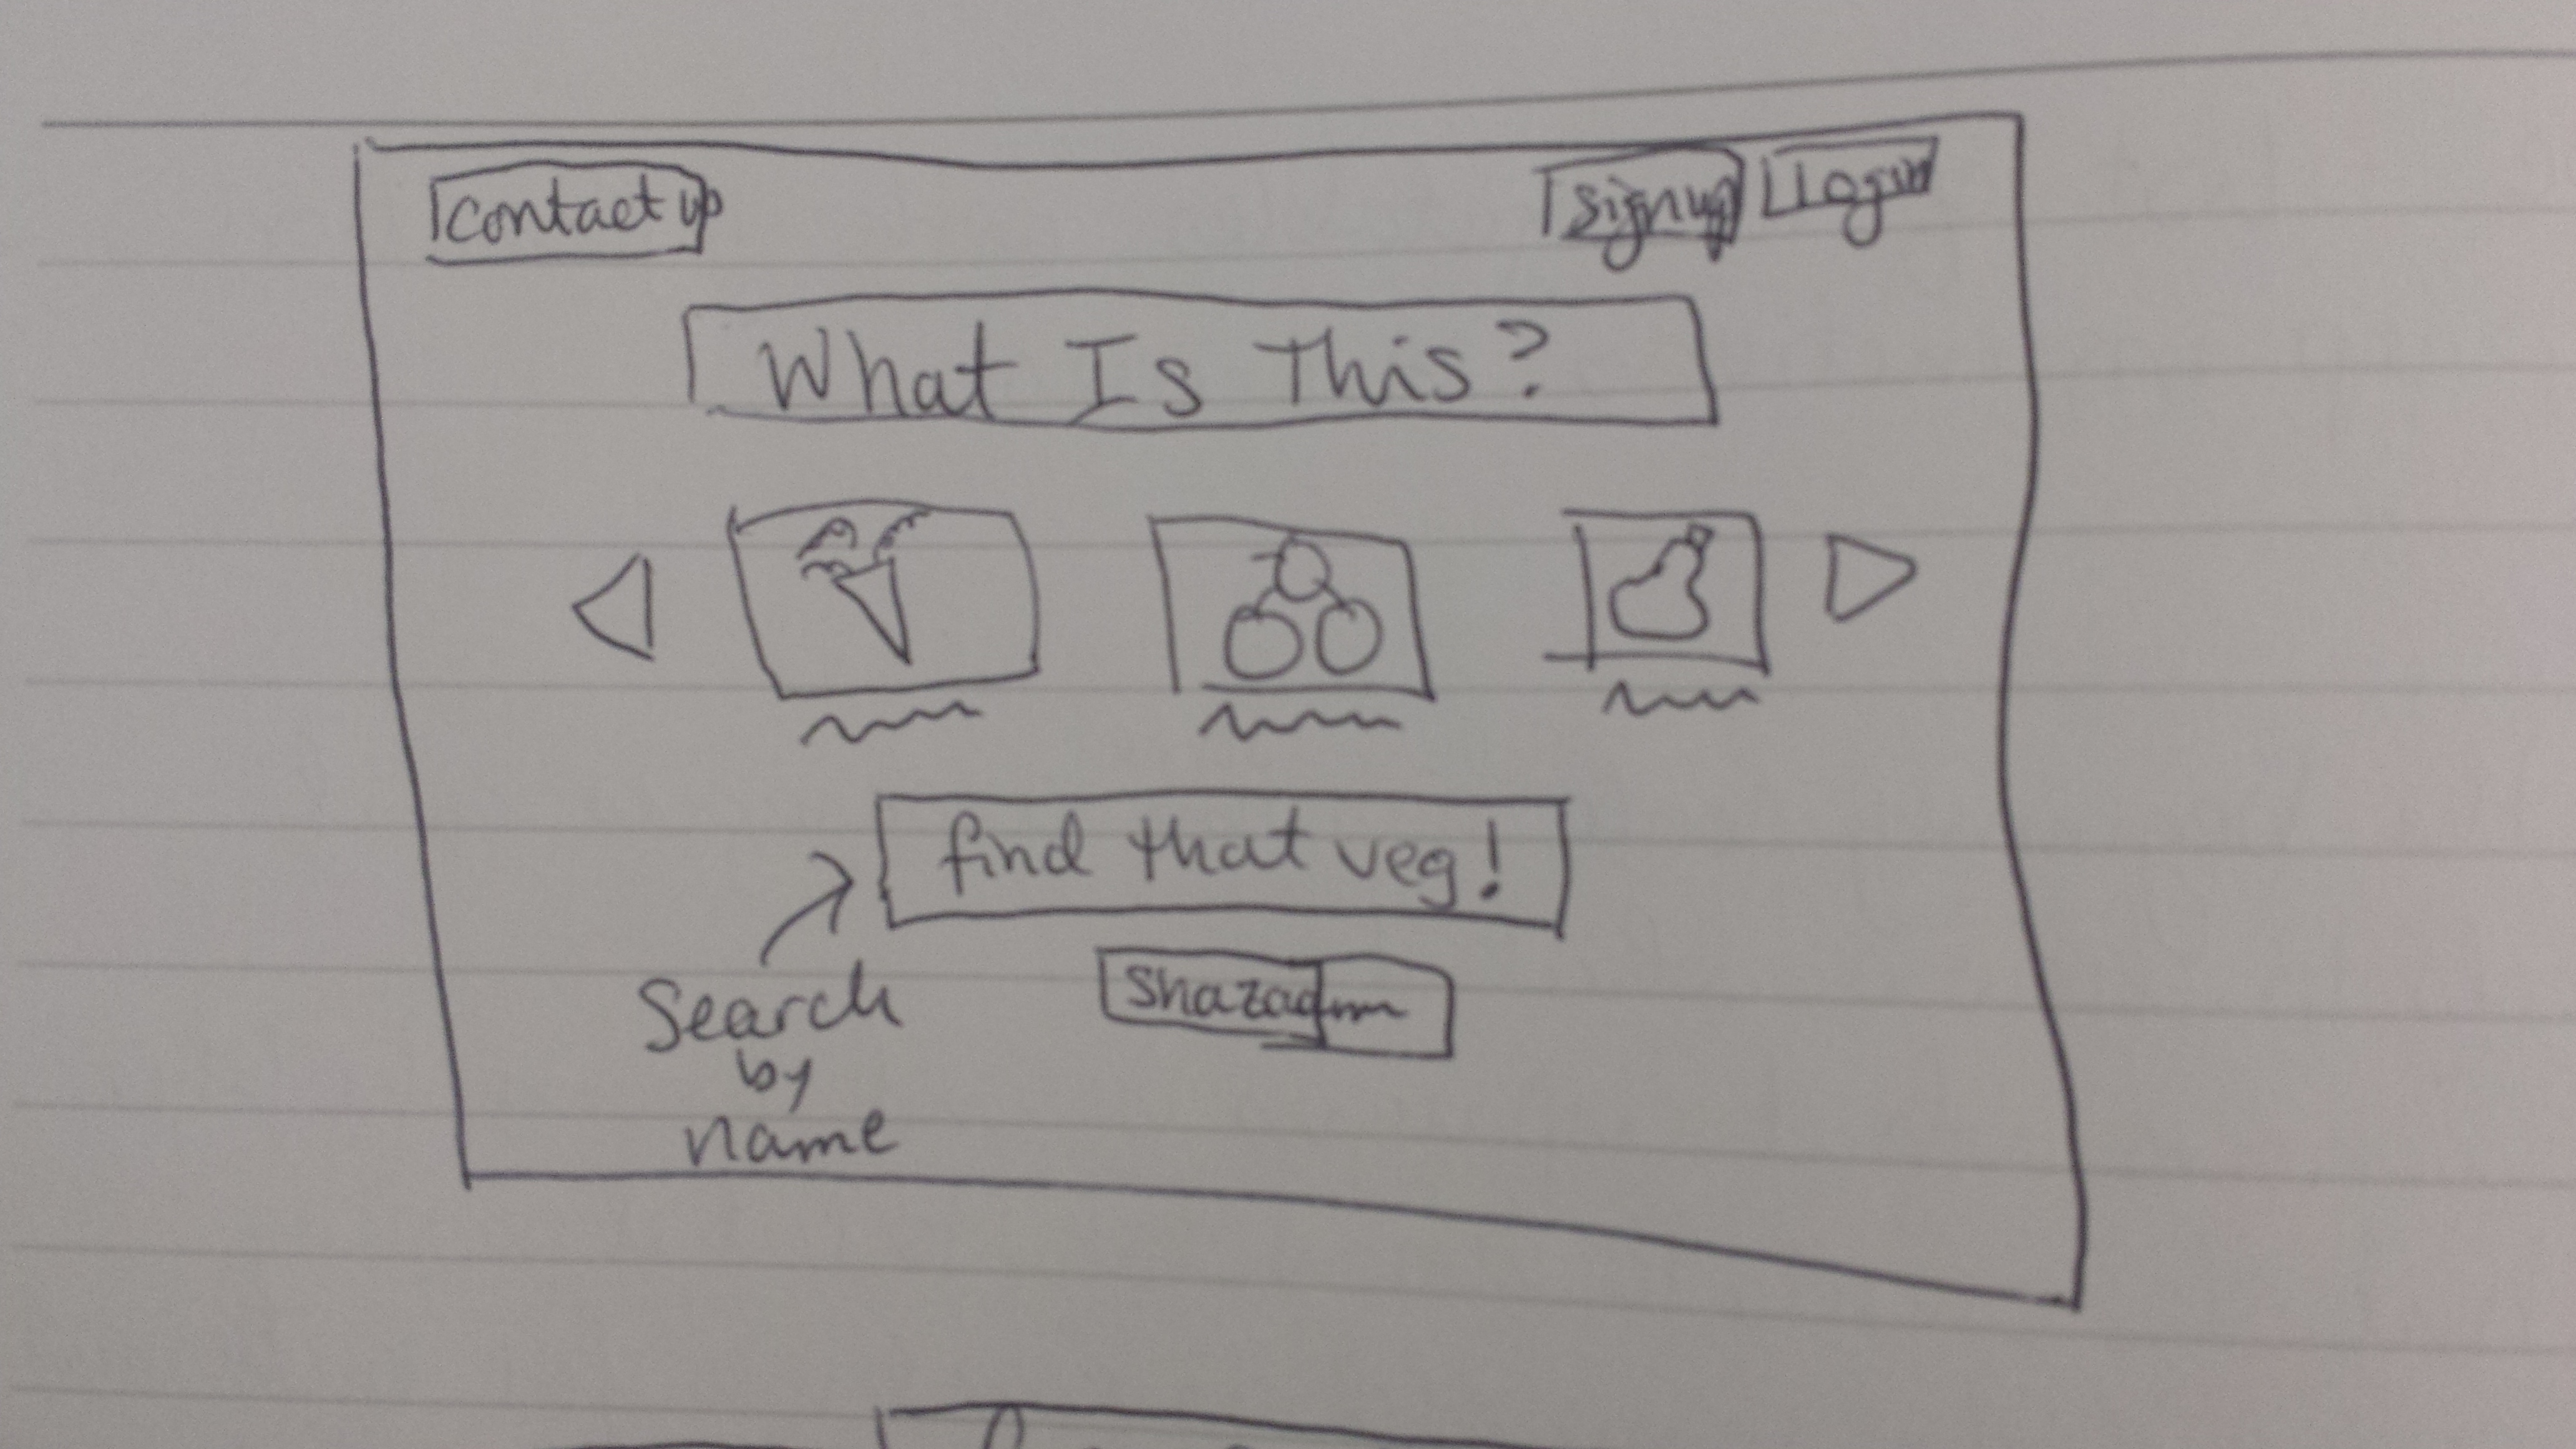 contact up
signup
Login
What Is This?
find that veg!
Search
by
name
Shazam